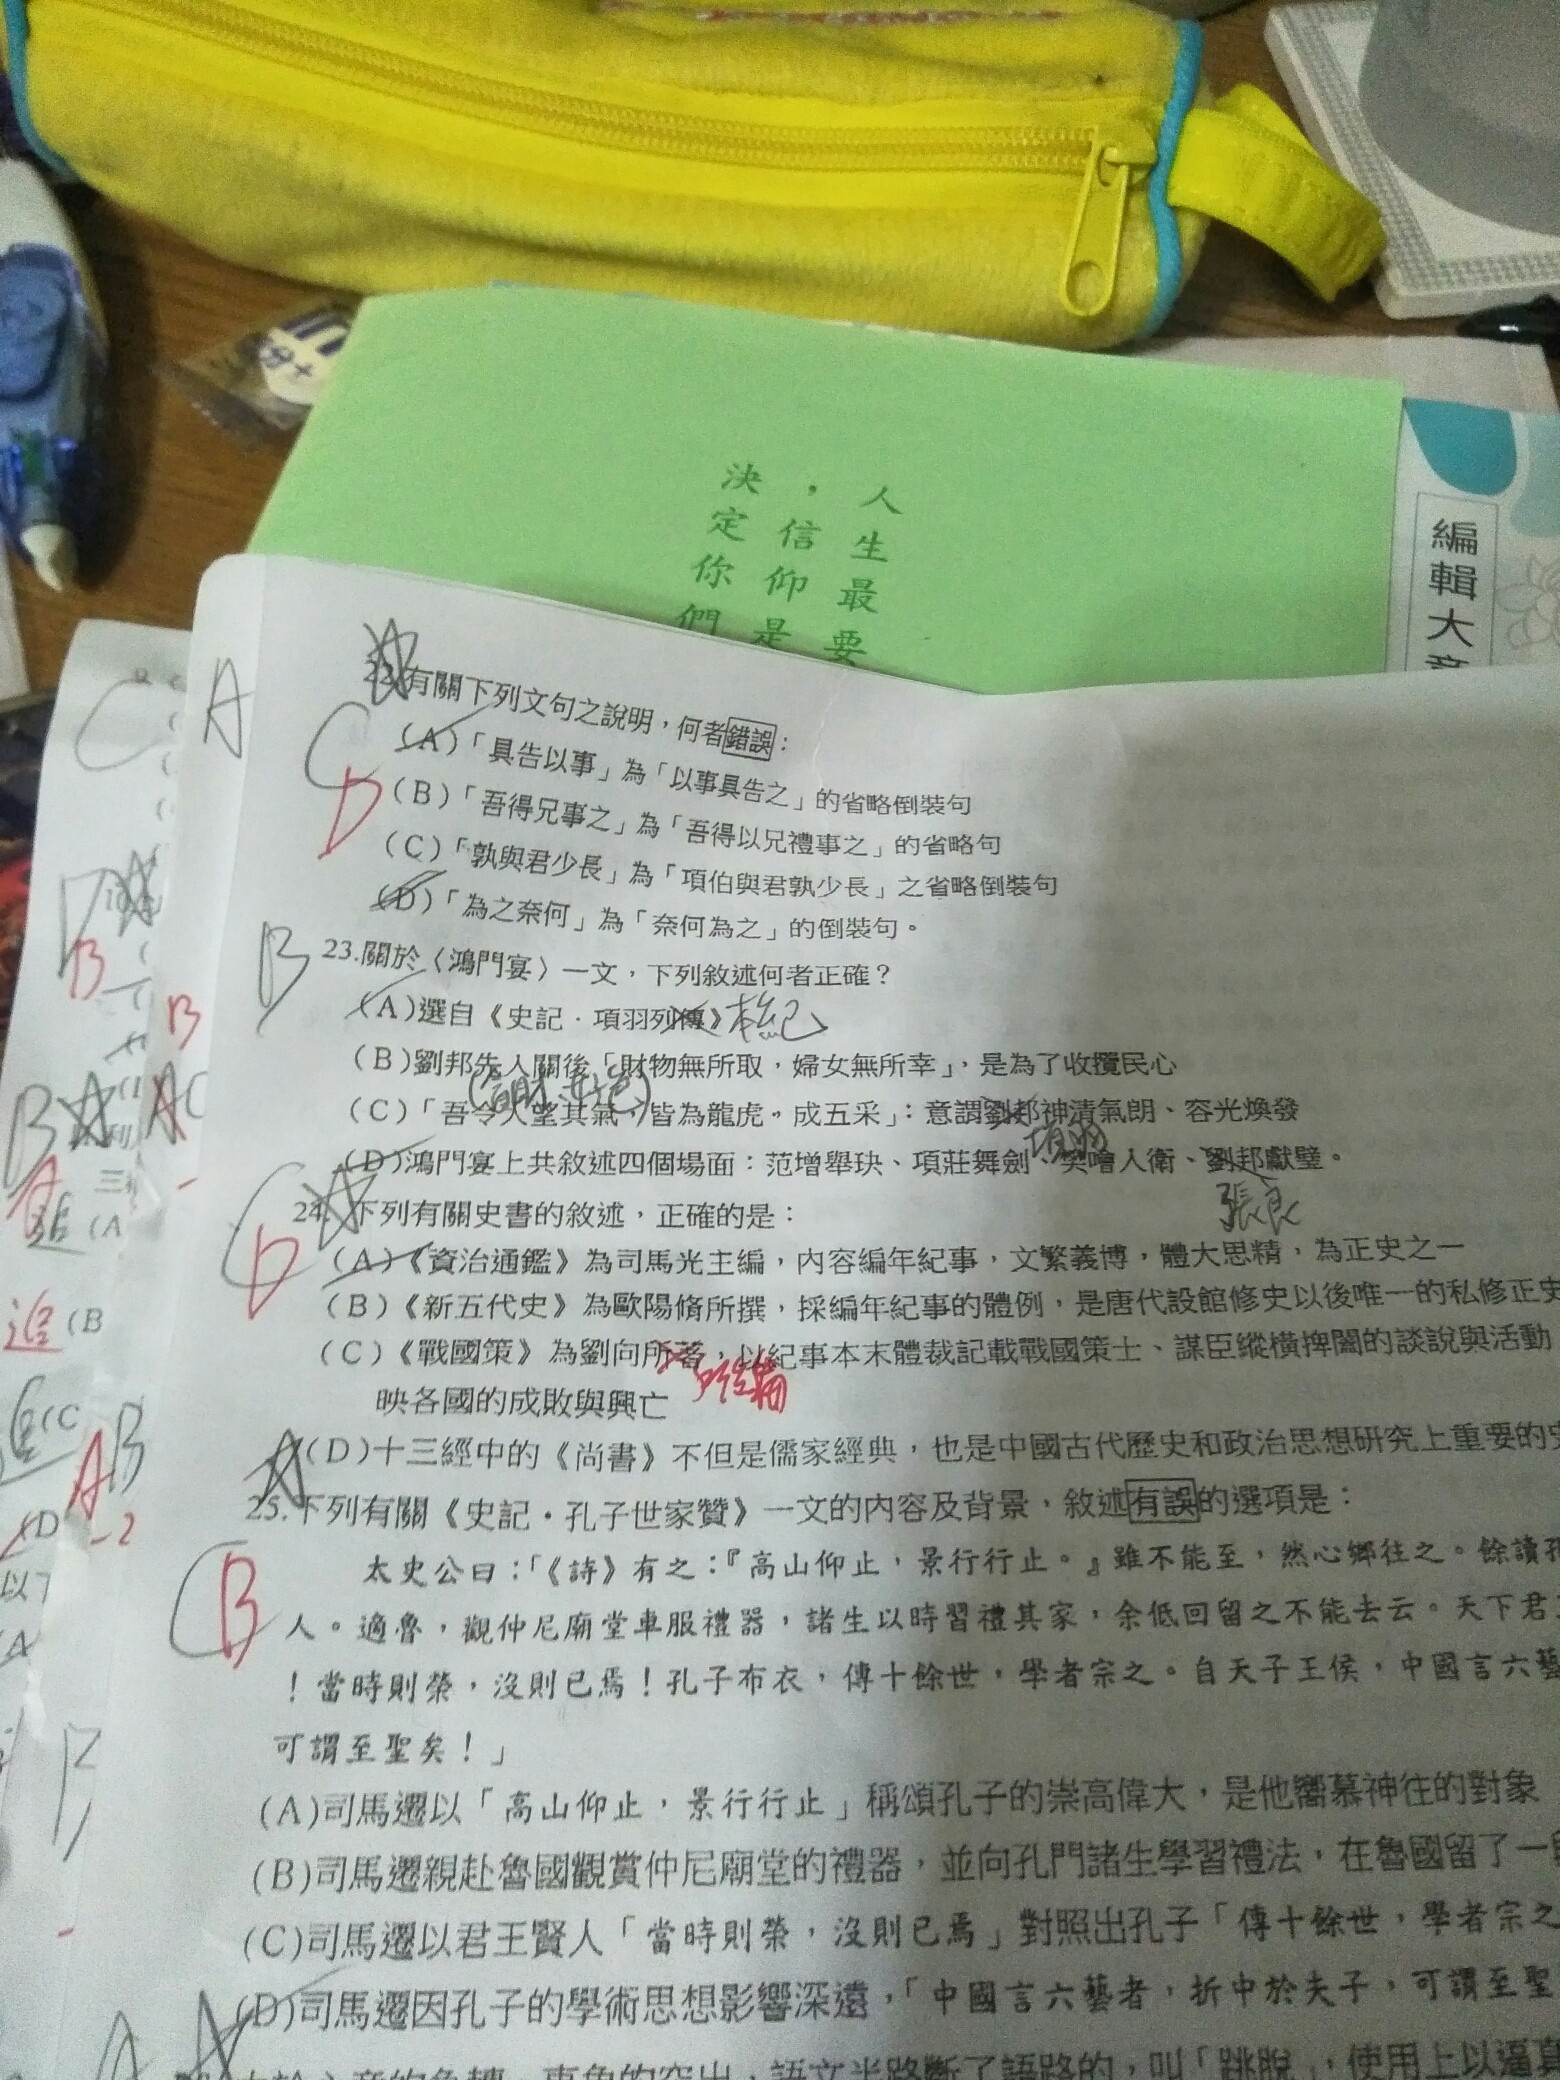 人生最要
，信仰是
決定你們
編輯大意
22.有關下列文句之說明，何者錯誤：
(A)「具告以事」為「以事具告之」的省略倒裝句
(B)「吾得兄事之」為「吾得以兄禮事之」的省略句
(C)「孰與君少長」為「項伯與君孰少長」之省略倒裝句
(D)「為之奈何」為「奈何為之」的倒裝句。
A
C
D
23.關於〈鴻門宴〉一文，下列敘述何者正確？
(A)選自《史記．項羽列傳》本紀
(B)劉邦先入關後「財物無所取，婦女無所幸」，是為了收攬民心
(C)「吾令人望其氣，皆為龍虎，成五采」：意謂劉邦神清氣朗、容光煥發
(D)鴻門宴上共敘述四個場面：范增舉玦、項莊舞劍、樊噲入衛、劉邦獻璧。
張良
B
24.下列有關史書的敘述，正確的是：
(A)《資治通鑑》為司馬光主編，內容編年紀事，文繁義博，體大思精，為正史之一
(B)《新五代史》為歐陽脩所撰，採編年紀事的體例，是唐代設館修史以後唯一的私修正史
(C)《戰國策》為劉向所著，以紀事本末體裁記載戰國策士、謀臣縱橫捭闔的談說與活動
映各國的成敗與興亡
(D)十三經中的《尚書》不但是儒家經典，也是中國古代歷史和政治思想研究上重要的史
C
D
25.下列有關《史記．孔子世家贊》一文的內容及背景，敘述有誤的選項是：
太史公曰：「《詩》有之：『高山仰止，景行行止。』雖不能至，然心鄉往之。餘讀孔
人。適魯，觀仲尼廟堂車服禮器，諸生以時習禮其家，余低回留之不能去云。天下君
！當時則榮，沒則已焉！孔子布衣，傳十餘世，學者宗之。自天子王侯，中國言六藝
可謂至聖矣！」
(A)司馬遷以「高山仰止，景行行止」稱頌孔子的崇高偉大，是他嚮慕神往的對象
(B)司馬遷親赴魯國觀賞仲尼廟堂的禮器，並向孔門諸生學習禮法，在魯國留了一段
(C)司馬遷以君王賢人「當時則榮，沒則已焉」對照出孔子「傳十餘世，學者宗之
(D)司馬遷因孔子的學術思想影響深遠，「中國言六藝者，折中於夫子，可謂至聖
C
B
語文半路斷了語路的，叫「跳脫」，使用上以逼真